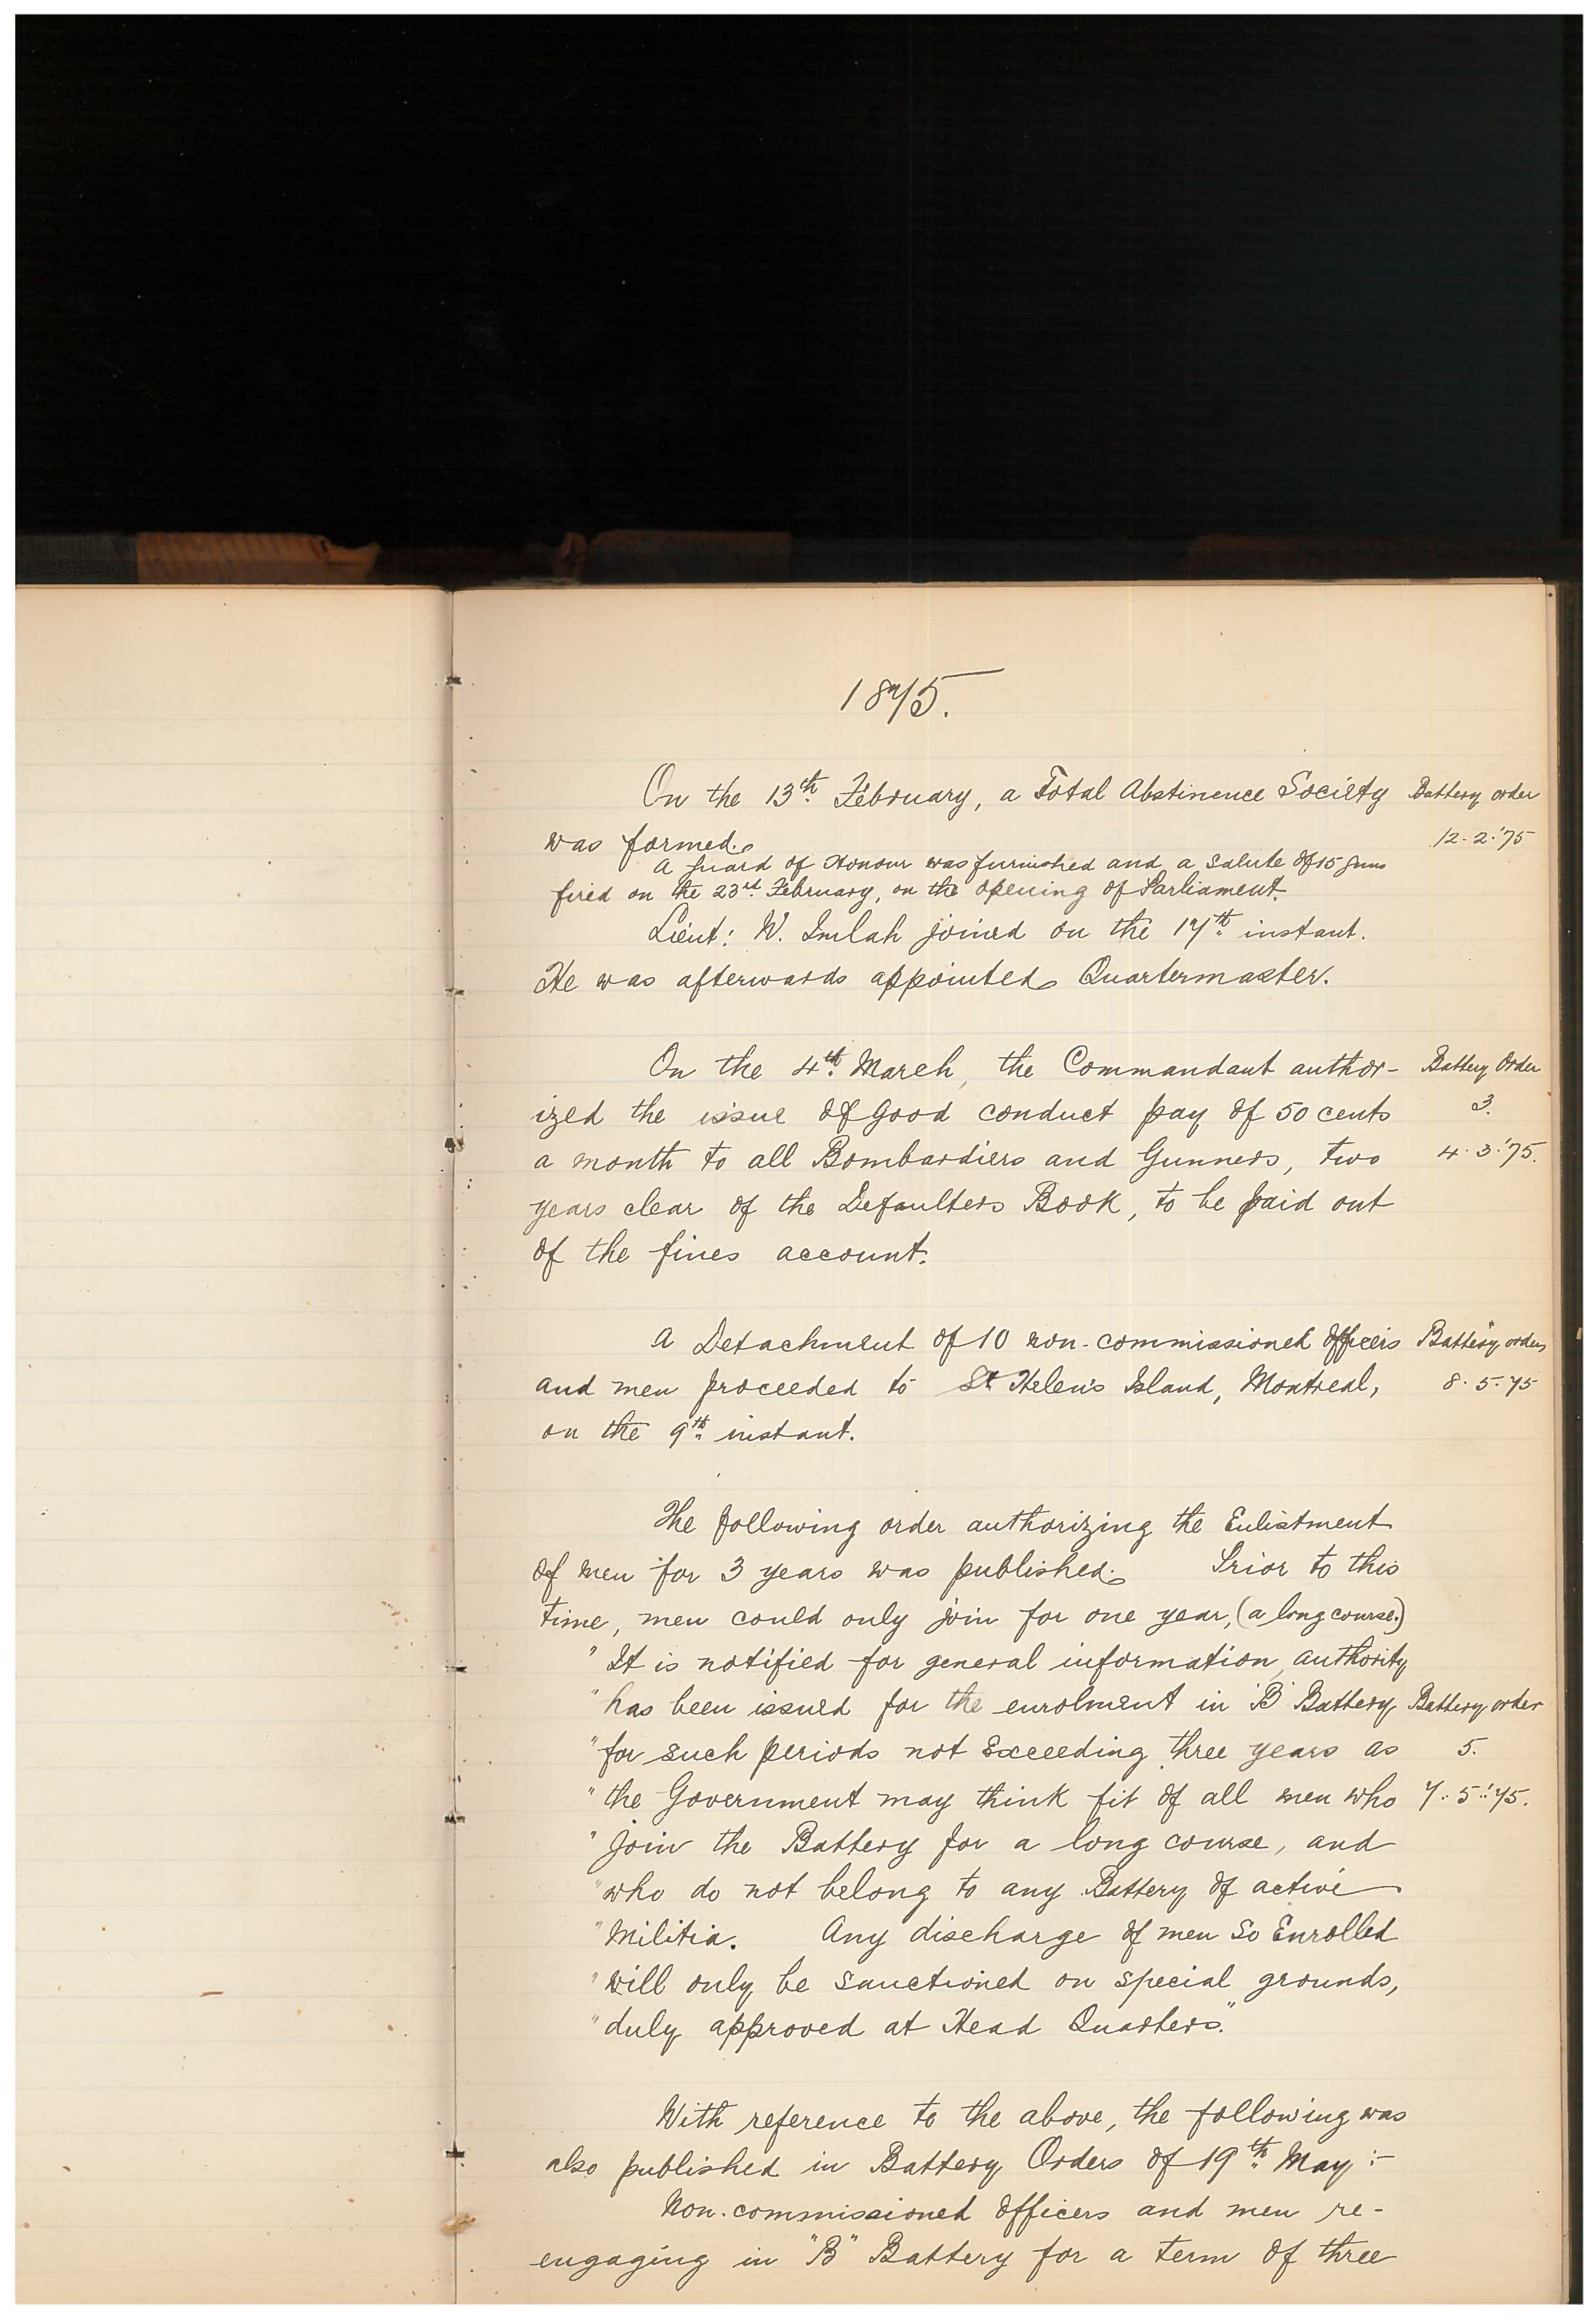 1875.
On the 13th February, a Total Abstinence Society Battery order
was formed. 12-2-'75
A Guard of Honour was furnished and a Salute of 15 guns
fired on the 23rd February, on the opening of Parliament.
Lieut: W. Imlah joined on the 17th instant.
He was afterwards appointed Quartermaster.
On the 4th March, the Commandant author- Battery Order
ized the issue of good conduct pay of 50 cents 3.
a month to all Bombardiers and Gunners, two 4.3.'75.
years clear of the Defaulters Book, to be paid out
of the fines account.
A Detachment of 10 non-commissioned officers Battery orders
and men proceeded to St Helen's Island, Montreal, 8.5.75
on the 9th instant.
The following order authorizing the Enlistment
of men for 3 years was published. Prior to this
time, men could only join for one year, (a long course.)
"It is notified for general information, authority
"has been issued for the enrolment in "B" Battery Battery order
"for such periods not Exceeding three years as 5.
"the Government may think fit of all men who 7.5.'75.
"join the Battery for a long course, and
"who do not belong to any Battery of active
"Militia. Any discharge of men so Enrolled
"will only be sanctioned on special grounds,
"duly approved at Head Quarters."
With reference to the above, the following was
also published in Battery Orders of 19th May :-
Non-commissioned Officers and men re-
engaging in "B" Battery for a term of three